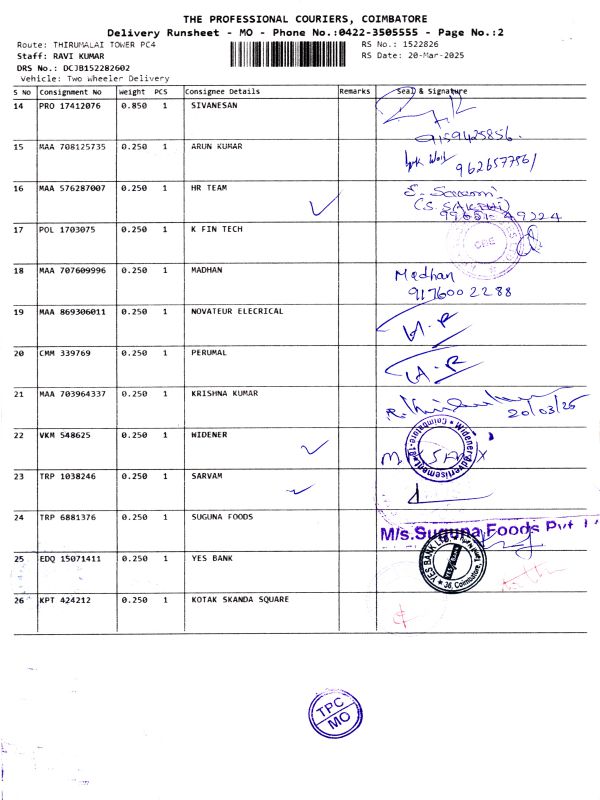 THE PROFESSIONAL COURIERS, COIMBATORE
Delivery Runsheet - MO - Phone No.:0422-3505555 - Page No.:2
Route: THIRUMALAI TOWER PC4 RS No.: 1522826
Staff: RAVI KUMAR RS Date: 20-Mar-2025
DRS No.: DCJB152282602
Vehicle: Two Wheeler Delivery
S No Consignment No Weight PCS Consignee Details Remarks Seal & Signature
14 PRO 17412076 0.850 1 SIVANESAN
9159425856.
15 MAA 708125735 0.250 1 ARUN KUMAR
9626577561
16 MAA 576287007 0.250 1 HR TEAM
(S. SAKTHI)
99651-49224
17 POL 1703075 0.250 1 K FIN TECH
CBE
18 MAA 707609996 0.250 1 MADHAN Madhan
9176002288
19 MAA 869306011 0.250 1 NOVATEUR ELECRICAL
20 CMM 339769 0.250 1 PERUMAL
21 MAA 703964337 0.250 1 KRISHNA KUMAR
20/03/25
22 VKM 548625 0.250 1 WIDENER
Widener Advertisement Coimbatore-18
23 TRP 1038246 0.250 1 SARVAM
24 TRP 6881376 0.250 1 SUGUNA FOODS
M/s.Suguna Foods Pvt
25 EDQ 15071411 0.250 1 YES BANK
YES BANK LTD. 36, Coimbatore,
26 KPT 424212 0.250 1 KOTAK SKANDA SQUARE
TPC
MO